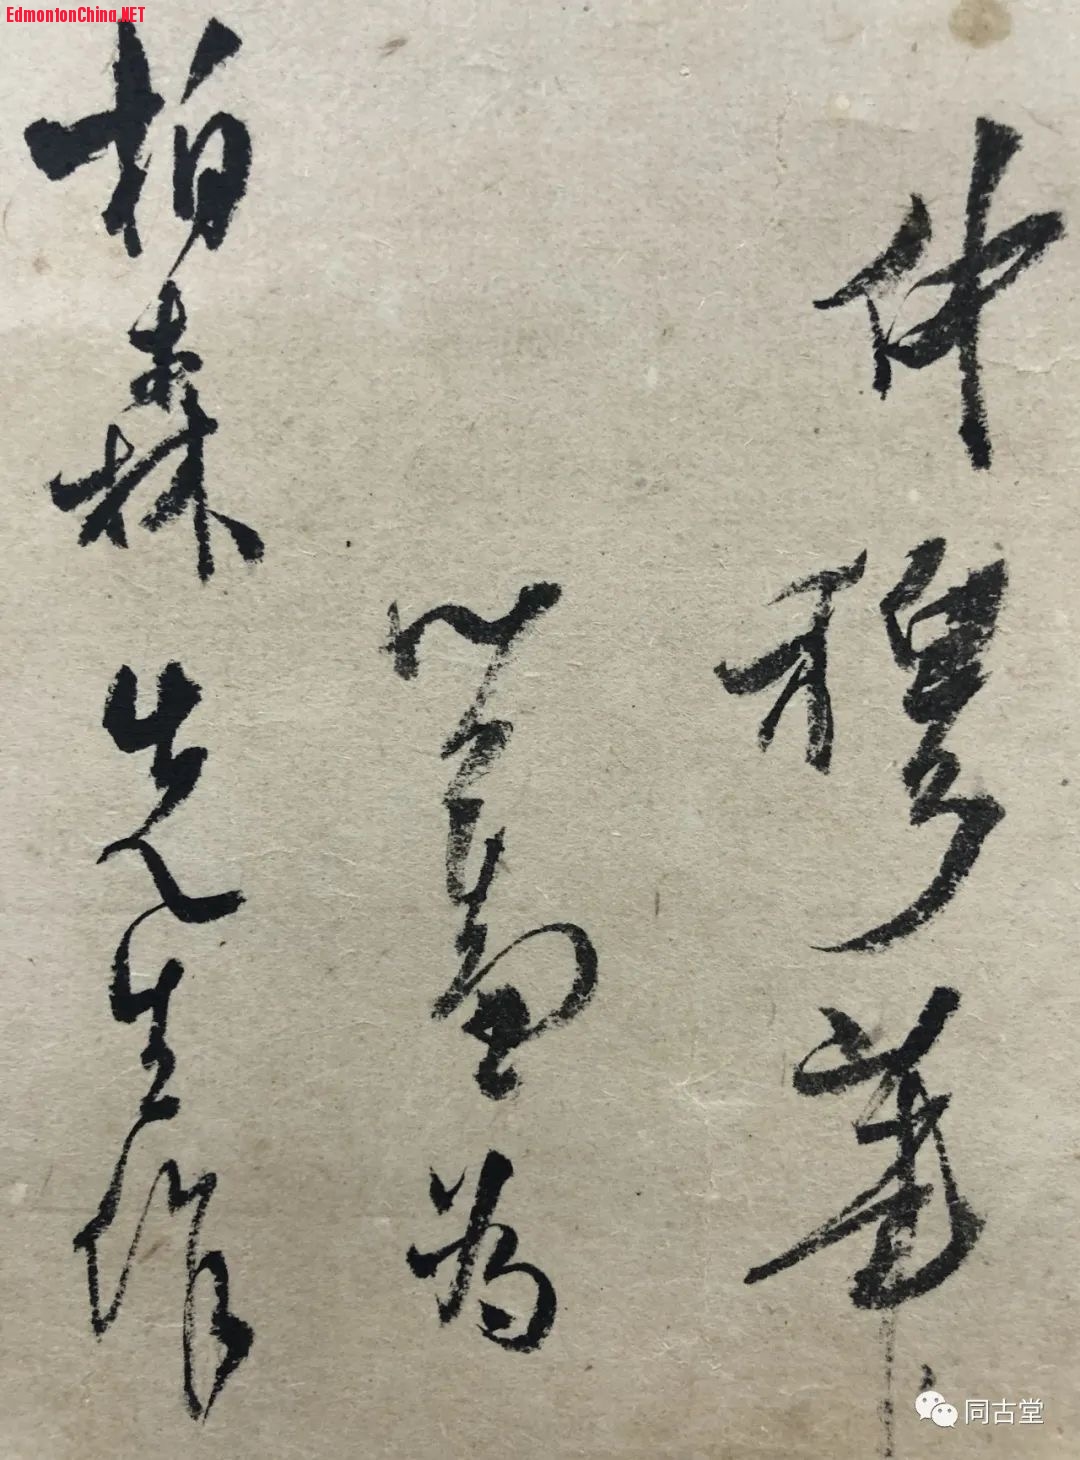 EdmontonChina.NET
仲穆筆
心畬為
柏森先生作
同古堂